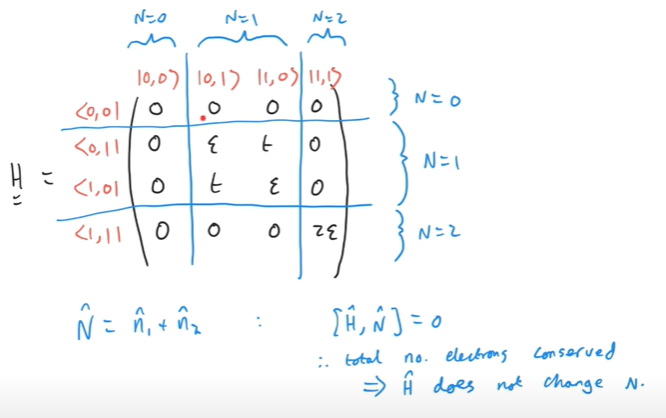 N=0 N=1 N=2
|0,0⟩ |0,1⟩ |1,0⟩ |1,1⟩
<0,0| 0 0 0 0 } N=0
<0,1| 0 ε t 0
H = <1,0| 0 t ε 0 } N=1
<1,1| 0 0 0 2ε } N=2
N̂ = n̂₁ + n̂₂ : [Ĥ, N̂] = 0
∴ total no. electrons conserved
⇒ Ĥ does not change N.